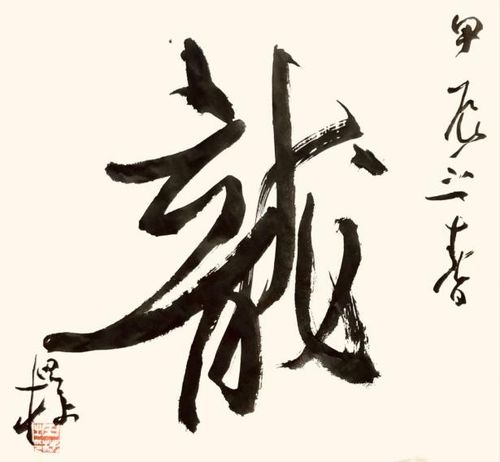 甲辰之春
龍